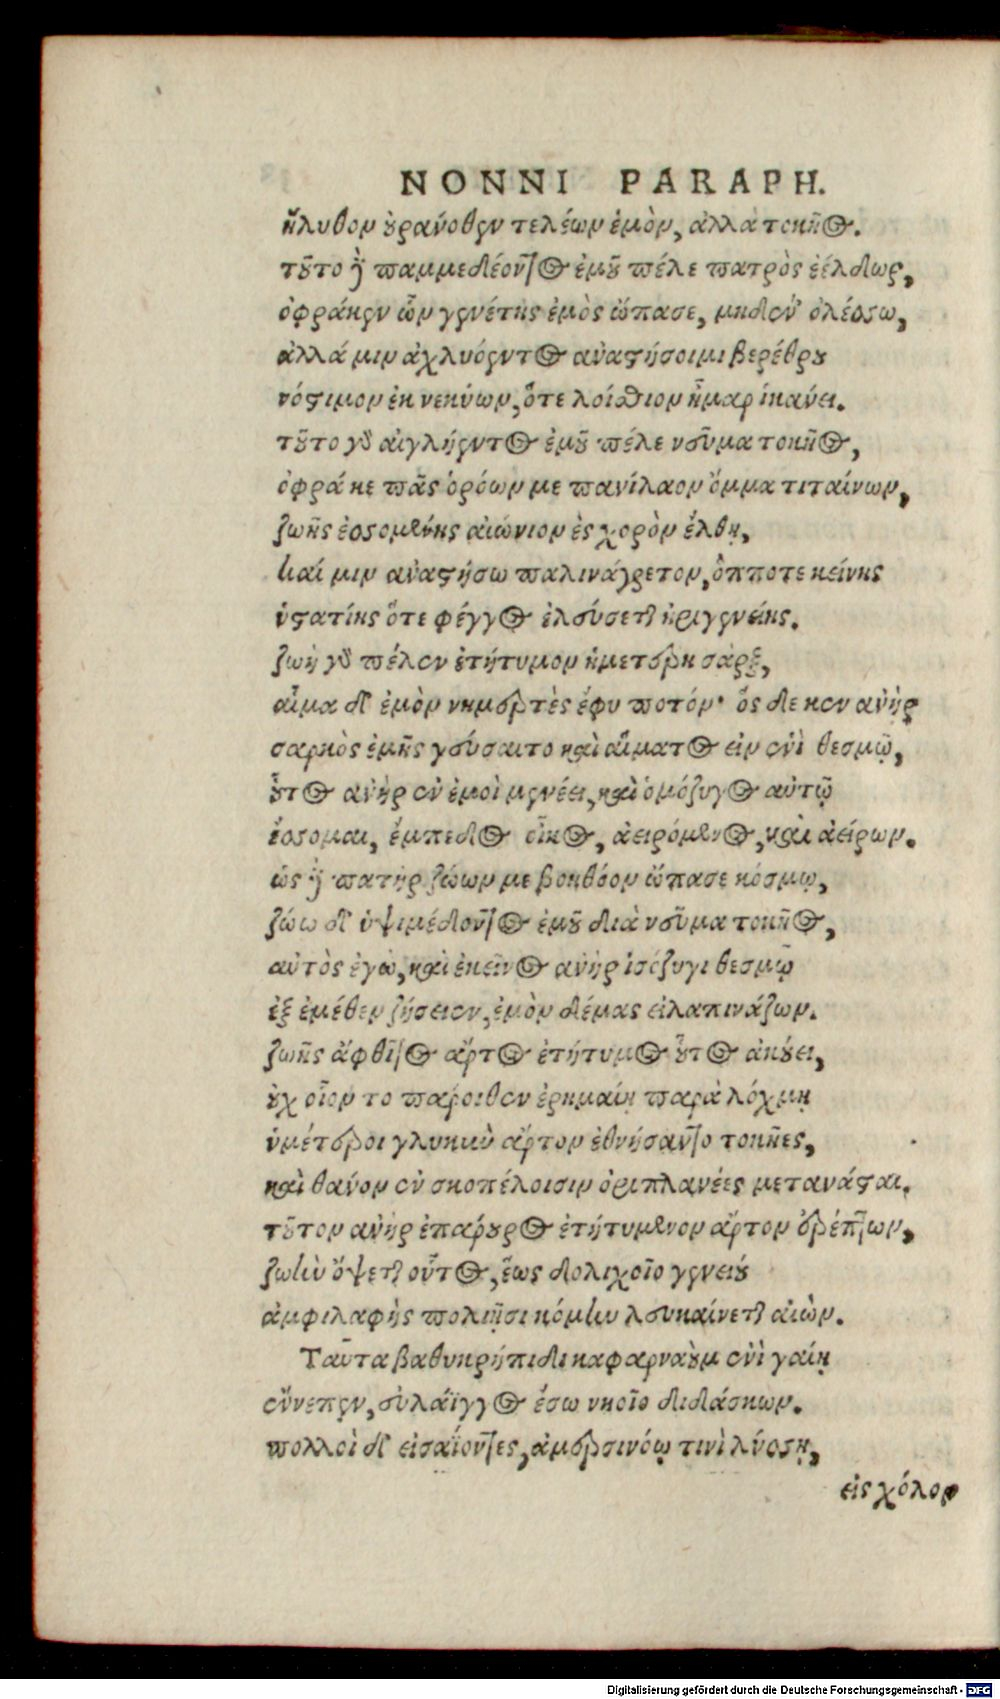 NONNI PARAPH.
ἤλυθον οὐρανόθεν τελέων ἐμὸν, ἀλλὰ τοκῆος.
τοῦτο γὰρ παμμεδέοντος ἐμοῦ πέλε πατρὸς ἐέλδωρ,
ὄφρά κεν ὧν γενέτης ἐμὸς ὤπασε, μηδὲν ὀλέσσω,
ἀλλά μιν ἀχλυόεντος ἀναστήσοιμι βερέθρου
νόστιμον ἐκ νεκύων, ὅτε λοίσθιον ἦμαρ ἱκάνει.
τοῦτο γὰρ αἰγλήεντος ἐμοῦ πέλε νεῦμα τοκῆος,
ὄφρά κε πᾶς ὁρόων με πανίλαον ὄμμα τιταίνων,
ζωῆς ἐσσομένης αἰώνιον ἐς χορὸν ἔλθῃ,
καί μιν ἀναστήσω παλινάγρετον, ὁππότε κείνης
ὑστατίης ὅτε φέγγος ἐλεύσεται ἠριγενείης.
ζωὴ γὰρ πέλεν ἐτήτυμον ἡμετέρη σάρξ,
αἷμα δ' ἐμὸν νημερτὲς ἔφυ ποτόν· ὃς δέ κεν ἀνὴρ
σαρκὸς ἐμῆς γεύσαιτο καὶ αἵματος εἰν ἑνὶ θεσμῷ,
οὗτος ἀνὴρ ἐν ἐμοὶ μενέει, καὶ ὁμόζυγος αὐτῷ
ἔσσομαι, ἔμπεδος οἶκος, ἀειρόμενος, καὶ ἀείρων.
ὡς γὰρ πατὴρ ζώων με βοηθόον ὤπασε κόσμῳ,
ζώω δ' ὑψιμέδοντος ἐμοῦ διὰ νεῦμα τοκῆος,
αὐτὸς ἐγὼ, καὶ ἐκεῖνος ἀνὴρ ἰσόζυγι θεσμῷ
ἐξ ἐμέθεν ζήσειεν, ἐμὸν δέμας εἰλαπινάζων.
ζωῆς ἄφθιτος ἄρτος ἐτήτυμος οὗτος ἀκούει,
οὐχ οἷον τὸ πάροιθεν ἐρημαίῃ παρὰ λόχμῃ
ὑμέτεροι γλυκὺν ἄρτον ἐθνήσαντο τοκῆες,
καὶ θάνον ἐν σκοπέλοισιν ὀριπλανέες μετανάσται.
τοῦτον ἀνὴρ ἐπάρουρος ἐτήτυμον ἄρτον ἐρέπτων,
ζωὴν ὄψεται οὗτος, ἕως δολιχοῖο γενείου
ἀμφιλαφὴς πολιῇσι κόμην λευκαίνεται αἰών.
Ταῦτα βαθυκρήπιδι καφαρναοὺμ ἐνὶ γαίῃ
ἔννεπεν, εὐλάϊγγος ἔσω νηοῖο διδάσκων.
πολλοὶ δ' εἰσαΐοντες, ἀμερσινόῳ τινὶ λύσσῃ,
εἰς χόλον
Digitalisierung gefördert durch die Deutsche Forschungsgemeinschaft - DFG